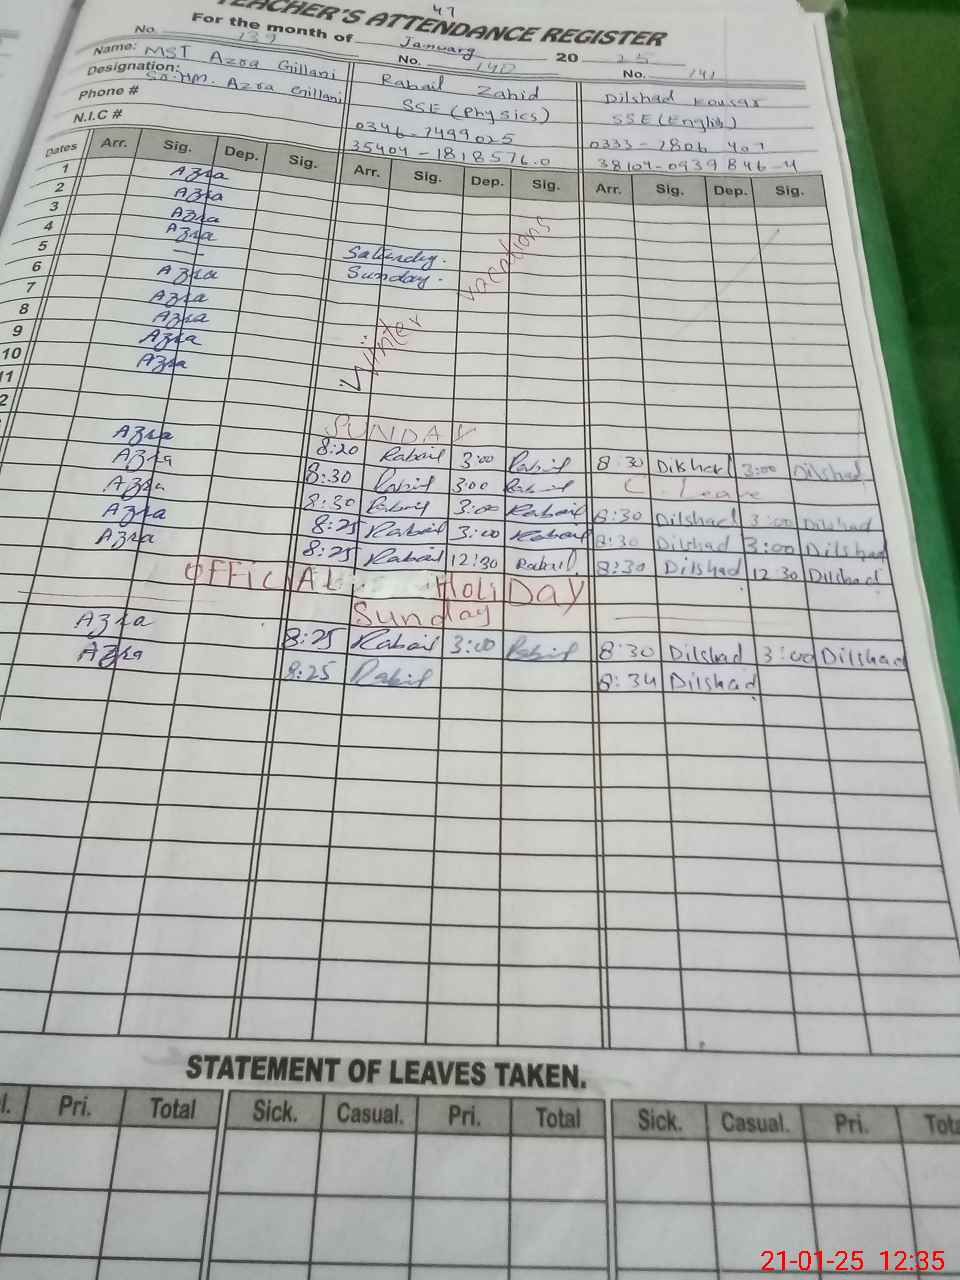 47
TEACHER'S ATTENDANCE REGISTER
For the month of January 20 25
No. 139 No. 140 No. 141
Name: MST Azra Gillani Rabail Zahid Dilshad Kousar
Designation: So.HM. Azra Gillani SSE (Physics) SSE (English)
Phone # 0346-7499025
N.I.C # 35404-1818576.0 38104-0939846-4
Dates Arr. Sig. Dep. Sig. Arr. Sig. Dep. Sig. Arr. Sig. Dep. Sig.
1 Azra
2 Azra
3 Azra
4 Azra Saturday.
5 — Sunday.
6 Azra
7 Azra
8 Azra
9 Azra
10 Azra
11
2
Winter vacations
SUNDAY
Azra 8:20 Rabail 3:00 Rabail 8:30 Dilshad 3:00 Dilshad
Azra 8:30 Rabail 3:00 Rabail C. Leave
Azra 8:30 Rabail 3:00 Rabail 8:30 Dilshad 3:00 Dilshad
Azra 8:25 Rabail 3:00 Rabail 8:30 Dilshad 3:00 Dilshad
Azra 8:25 Rabail 12:30 Rabail 8:30 Dilshad 12:30 Dilshad
OFFICIAL HoliDay
Sunday
Azra 8:25 Rabail 3:00 Rabail 8:30 Dilshad 3:00 Dilshad
Azra 8:25 Rabail 8:34 Dilshad
STATEMENT OF LEAVES TAKEN.
l. Pri. Total Sick. Casual. Pri. Total Sick. Casual. Pri. Tota
21-01-25 12:35